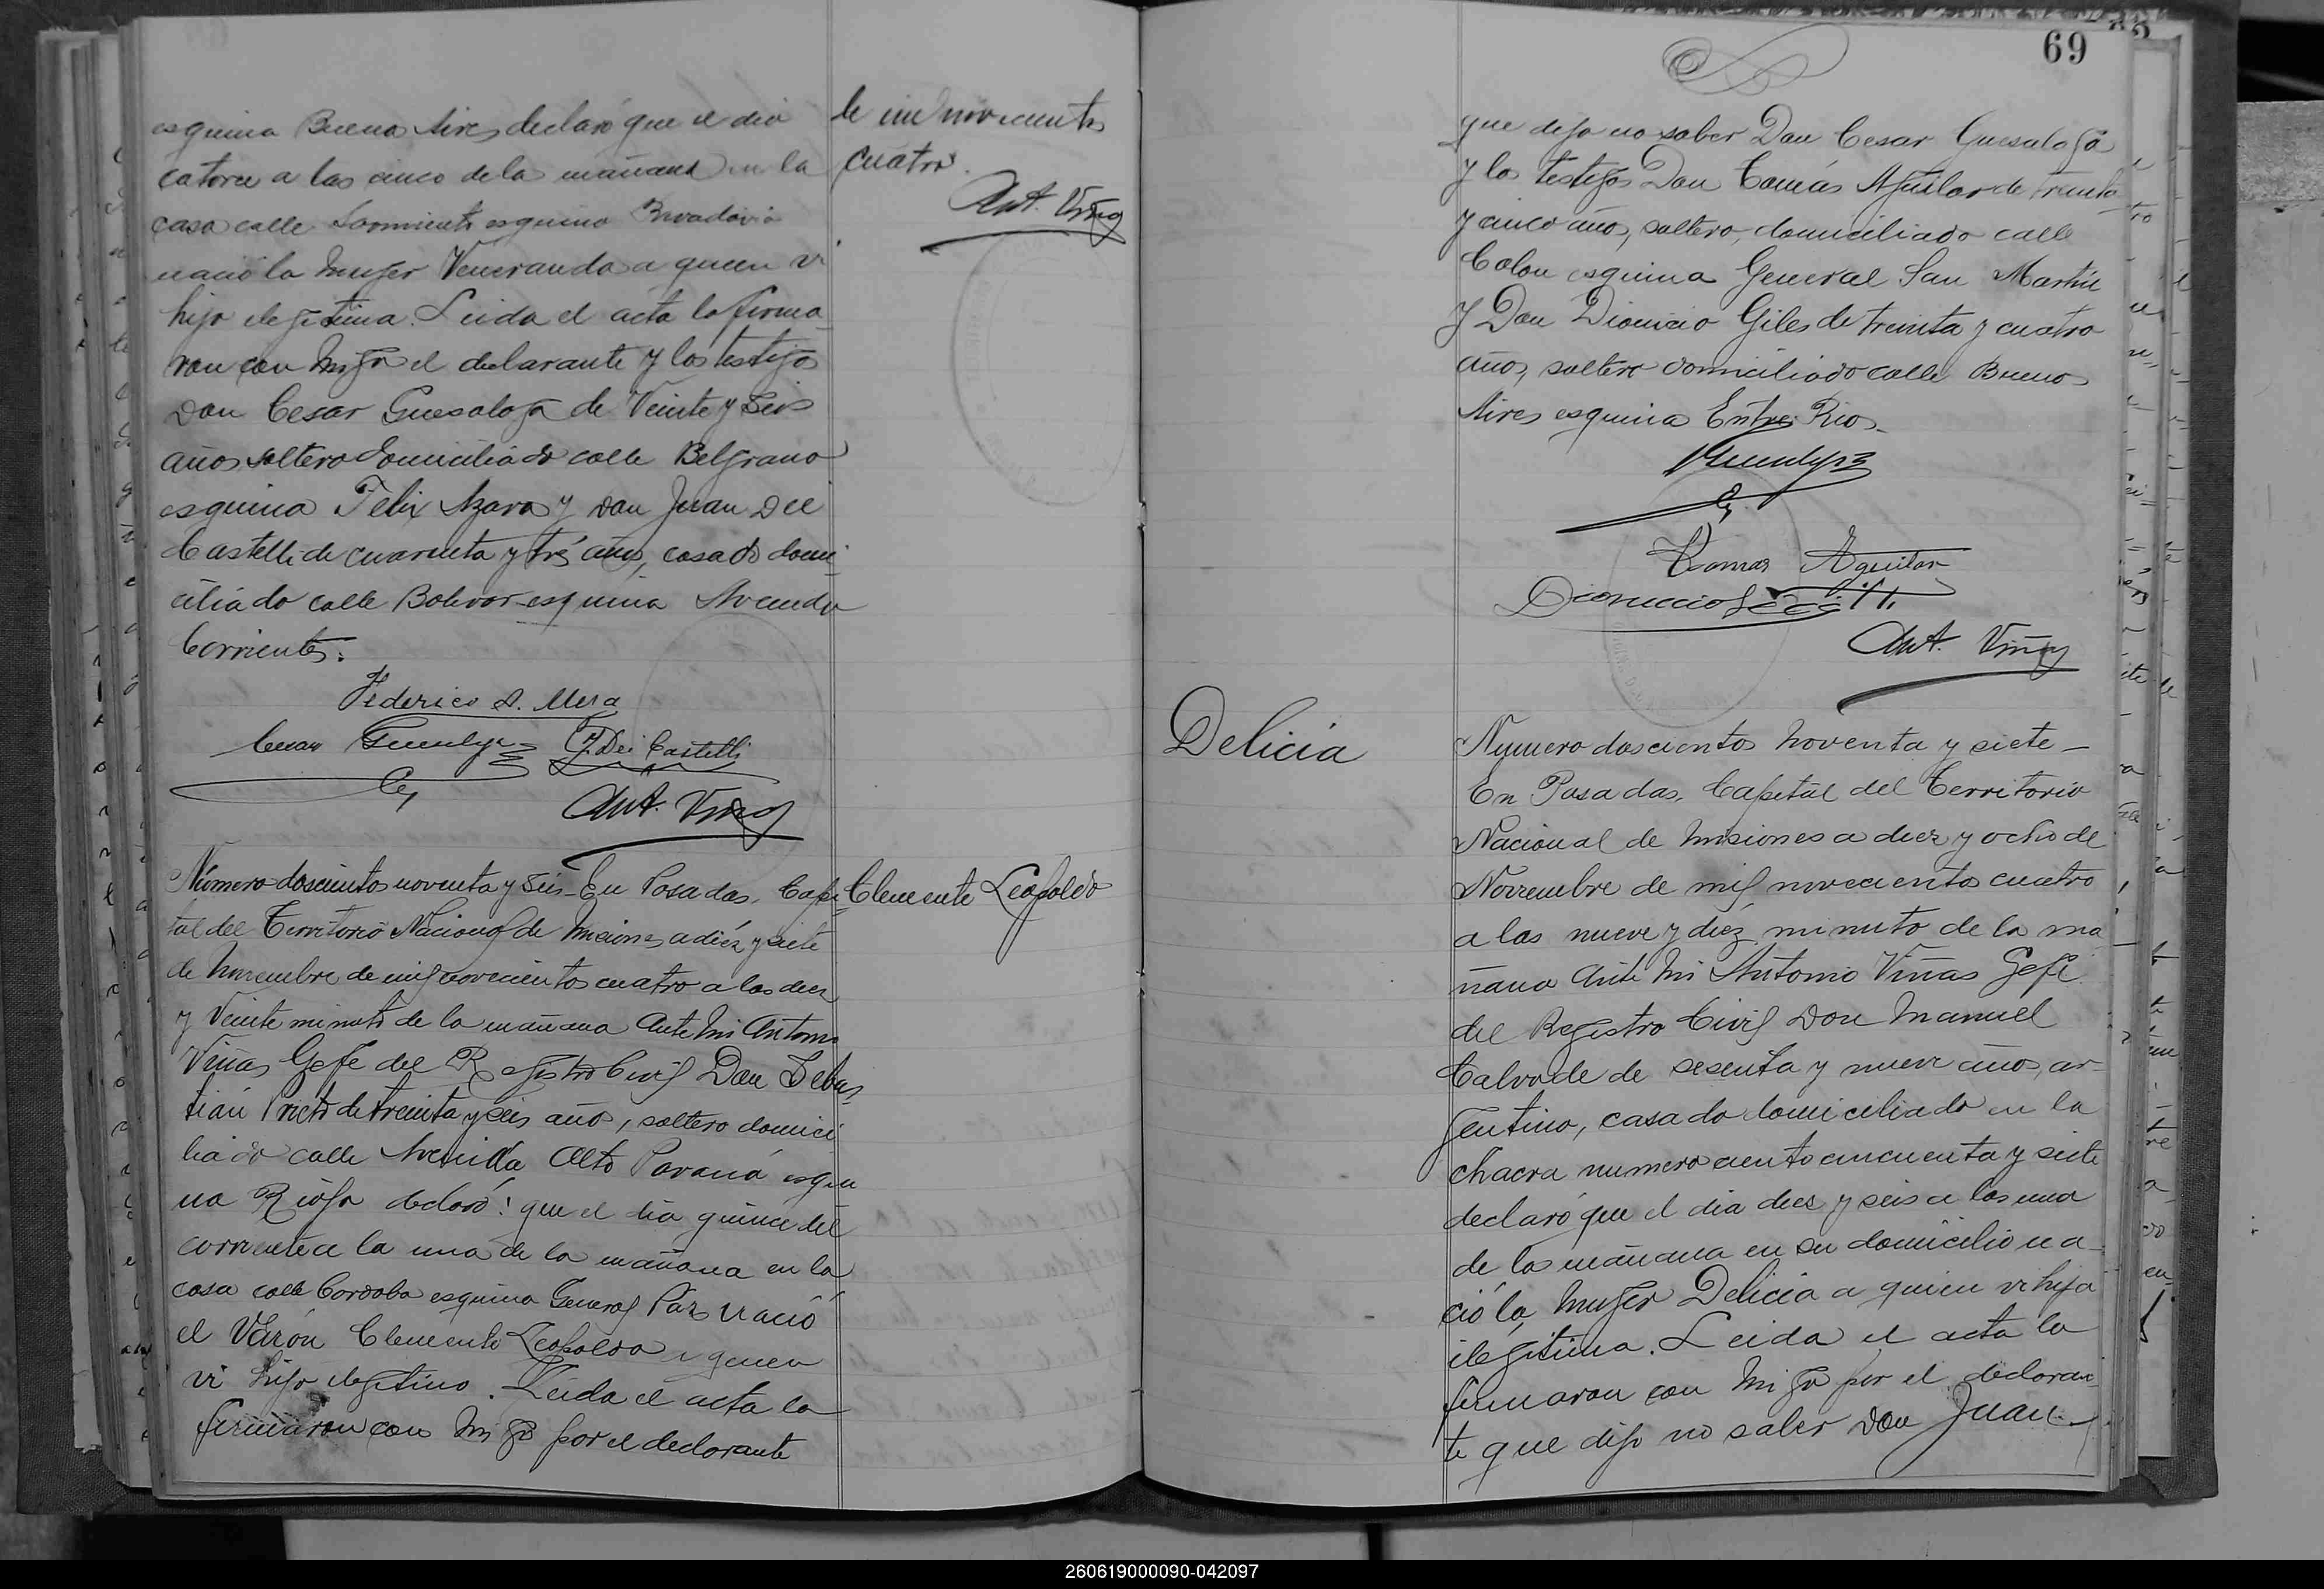 esquina Buenos Aires declaró que el dia
catorce a las cinco de la mañana en la
casa calle Sarmiento esquina Rivadavia
nació la muger Veneranda a quien vi
hija ilegitima. Leida el acta la firma
ron con migo el declarante y los testigos
Don Cesar Guesalaga de Veinte y seis
años soltero domiciliado calle Belgrano
esquina Felix Azara y don Juan Dei
Castelli de cuarenta y tres años, casado domi
ciliado calle Bolivar esquina Avenida
Corrientes.
Federico A. Mera
Cesar Guesalaga J. Dei Castelli
Ant. Viñas
de mil novecientos
cuatro.
Ant. Viñas
Número doscientos noventa y seis En Posadas, Capi
tal del Territorio Nacional de Misiones a diez y siete
de Noviembre de mil novecientos cuatro a las diez
y Veinte minutos de la mañana Ante mi Antonio
Viñas Gefe del Registro Civil Don Sebas
tian Prieto de treinta y seis año, soltero domici
liado calle Avenida Alto Paraná esqui
na Rioja declaró: que el dia quince del
corriente a la una de la mañana en la
casa calle Cordoba esquina General Paz nació
el Varón Clemente Leopoldo a quien
vi hijo ilegitimo. Leida el acta la
firmaron con migo por el declarante
Clemente Leopoldo
69
que dijo no saber Don Cesar Guesalaga
y los testigos Don Tomás Aguilar de treinta
y cinco años, soltero, domiciliado calle
Colon esquina General San Martin
y Don Dionicio Giles de treinta y cuatro
años, soltero domiciliado calle Buenos
Aires esquina Entre Rios.
Tomas Aguilar
Dionicio
Ant. Viñas
Delicia
Numero doscientos noventa y siete
En Posadas, Capital del Territorio
Nacional de Misiones a diez y ocho de
Noviembre de mil novecientos cuatro
a las nueve y diez minuto de la ma
ñana Ante mi Antonio Viñas Gefe
del Registro Civil Don Manuel
de sesenta y nueve años, ar-
gentino, casado domiciliado en la
chacra numero ciento cincuenta y siete
declaró que el dia diez y seis a las una
de la mañana en su domicilio na-
ció la muger Delicia a quien vi hija
ilegitima. Leida el acta la
firmaron con migo por el declaran-
te que dijo no saber Don Juan
260619000090-042097